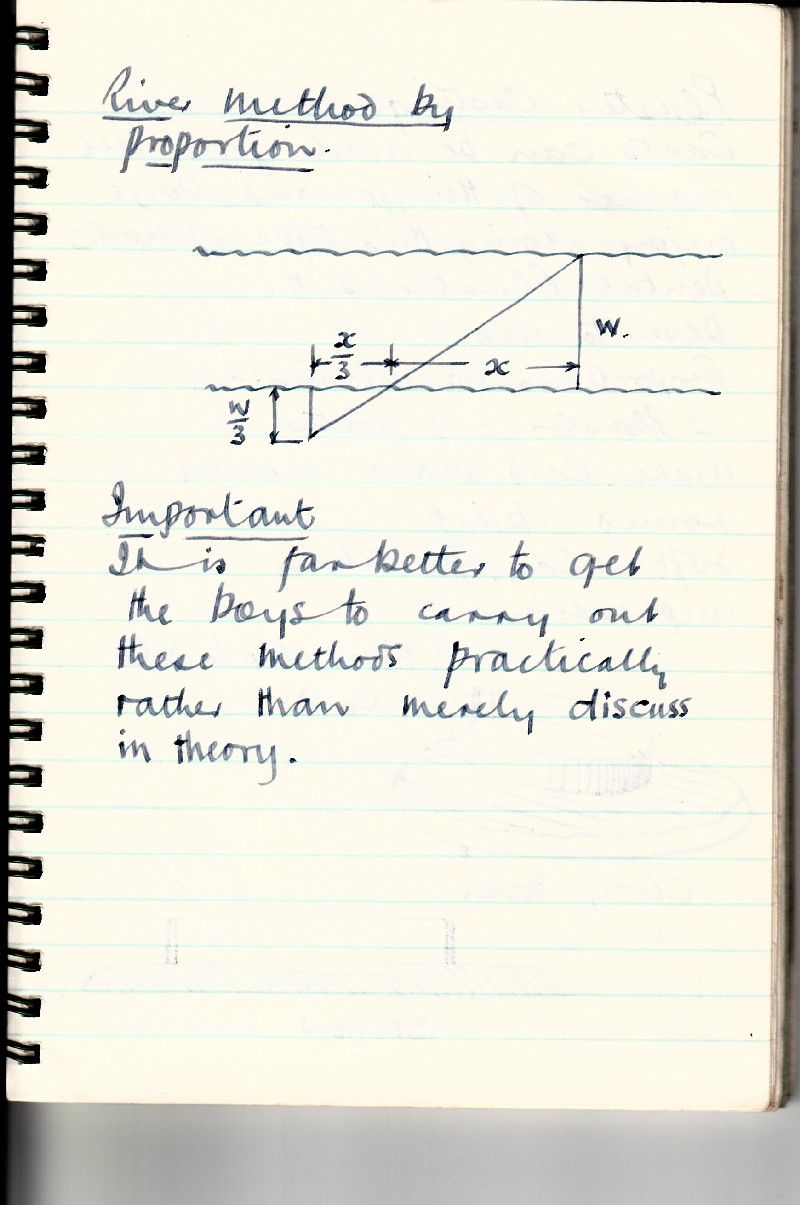 River method by
proportion.
W.
x
3
x
W
3
Important
It is far better to get
the boys to carry out
these methods practically
rather than merely discuss
in theory.